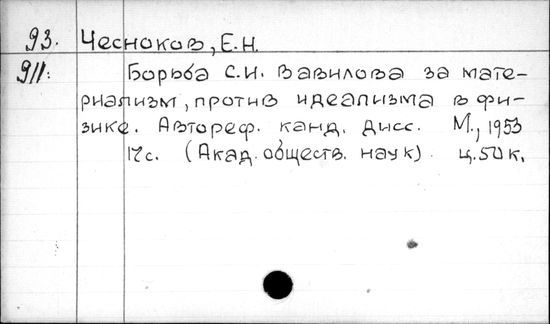 93. Чесноков, Е.Н.
911: Борьба С.И. Вавилова за мате-
риализм, против идеализма в фи-
зике. Автореф. канд. дисс. М., 1953
17с. (Акад. обществ. наук). ц.50к.